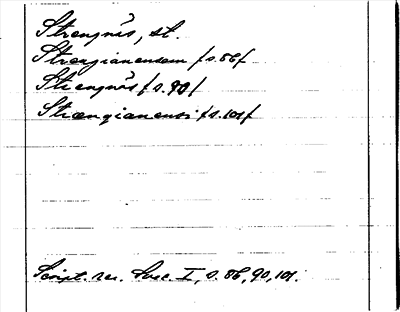 Strengnäs, st.
Strengianensem /s.86/
Strengnäs /s.90/
Strængianensi /s.101/
Script. rer. Svec. I, s. 86, 90, 101.